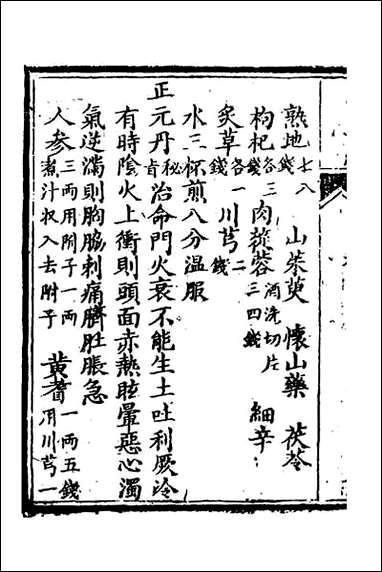 熟地七八錢 山茱萸 懷山藥 茯苓
枸杞各三錢 肉蓯蓉酒洗切片三四錢 細辛
炙草各一錢 川芎二錢
水三杯煎八分温服
正元丹秘旨治命門火衰不能生土吐利厥冷
有時陰火上衝則頭面赤熱眩暈惡心濁
氣逆滿則胸脇刺痛臍肚脹急
人參三兩用附子一兩煮汁收入去附子 黃耆一兩五錢用川芎一